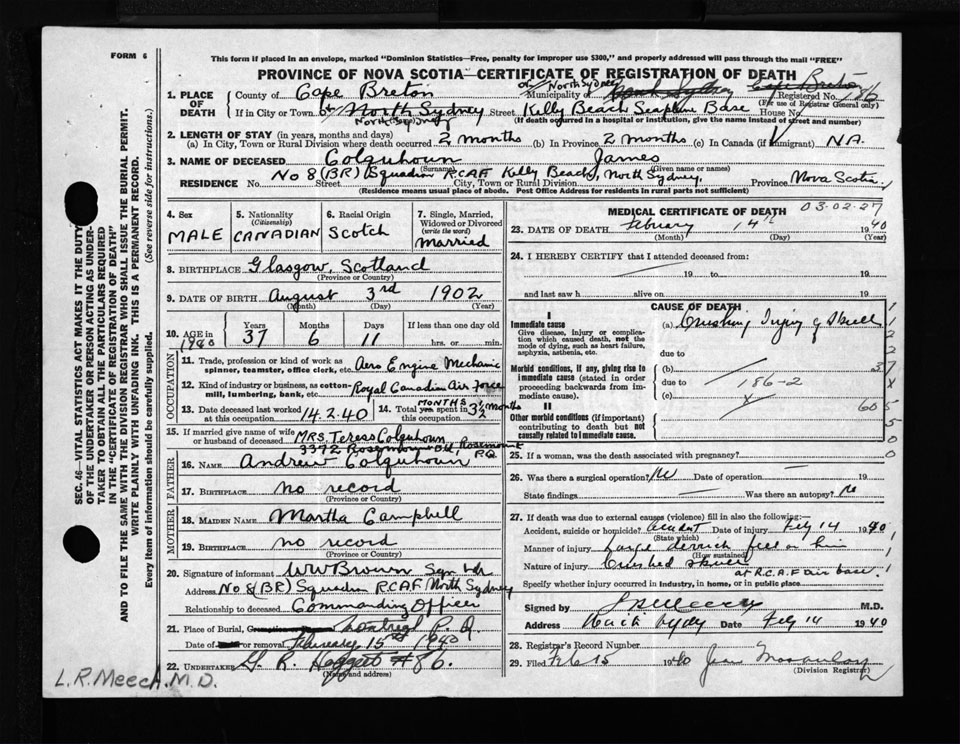 FORM 6
This form if placed in an envelope, marked "Dominion Statistics—Free, penalty for improper use $300," and properly addressed will pass through the mail "FREE"
PROVINCE OF NOVA SCOTIA—CERTIFICATE OF REGISTRATION OF DEATH
1. PLACE OF DEATH
County of Cape Breton or Municipality of North Sydney Cape Breton Registered No. 186
(For use of Registrar General only)
If in City or Town North Sydney Street Kelly Beach Seaplane Base House No.
North Sydney (If death occurred in a hospital or institution, give the name instead of street and number)
2. LENGTH OF STAY (in years, months and days)
(a) In City, Town or Rural Division where death occurred 2 months (b) In Province 2 months (c) In Canada (if immigrant) NA.
3. NAME OF DECEASED Colquhoun James
(Surname) (Given name or names)
RESIDENCE No. No 8 (BR) Squadron RCAF Kelly Beach, North Sydney, Province Nova Scotia
Street City, Town or Rural Division
(Residence means usual place of abode. Post Office Address for residents in rural parts not sufficient)
4. Sex MALE
5. Nationality (Citizenship) CANADIAN
6. Racial Origin Scotch
7. Single, Married, Widowed or Divorced (write the word) Married
8. BIRTHPLACE Glasgow, Scotland
(Province or Country)
9. DATE OF BIRTH August 3rd 1902
(Month) (Day) (Year)
10. AGE in 1940 Years 37 Months 6 Days 11 If less than one day old hrs. or min.
OCCUPATION
11. Trade, profession or kind of work as spinner, teamster, office clerk, etc. Aero Engine Mechanic
12. Kind of industry or business, as cotton-mill, lumbering, bank, etc. Royal Canadian Air Force
13. Date deceased last worked at this occupation 14.2.40
14. Total yrs. MONTHS spent in this occupation 3½ months
15. If married give name of wife or husband of deceased MRS. Teress Colquhoun
3372 Rosemount Bld, Rosemount P.Q.
FATHER
16. NAME Andrew Colquhoun
17. BIRTHPLACE no record
(Province or Country)
MOTHER
18. MAIDEN NAME Martha Campbell
19. BIRTHPLACE no record
(Province or Country)
20. Signature of informant WW Brown Sqn Ldr
Address No 8 (BR) Squadron RCAF North Sydney
Relationship to deceased Commanding Officer
21. Place of Burial, Cremation or Removal Montreal P.Q.
Date of burial or removal February 15th 1940
22. UNDERTAKER #86.
(Name and address)
MEDICAL CERTIFICATE OF DEATH 03-02-27
23. DATE OF DEATH February 14th 1940
(Month) (Day) (Year)
24. I HEREBY CERTIFY that I attended deceased from:
19 to 19
and last saw h alive on 19
CAUSE OF DEATH
I
Immediate cause
Give disease, injury or complication which caused death, not the mode of dying, such as heart failure, asphyxia, asthenia, etc.
(a) Crushing Injury of Skull
due to
Morbid conditions, if any, giving rise to immediate cause (stated in order proceeding backwards from immediate cause).
(b)
due to 186-2
(c)
II
Other morbid conditions (if important) contributing to death but not causally related to immediate cause.
25. If a woman, was the death associated with pregnancy?
26. Was there a surgical operation? No Date of operation 19
State findings Was there an autopsy? No
27. If death was due to external causes (violence) fill in also the following:—
Accident, suicide or homicide? Accident Date of injury Feb 14 1940
(State which)
Manner of injury Large derrick fell on him
(How sustained)
Nature of injury Crushed skull
at R.C.A.F air base.
Specify whether injury occurred in industry, in home, or in public place
Signed by L R Meech M.D.
Address North Sydney Date Feb 14 1940
28. Registrar's Record Number
29. Filed Feb 15 1940
(Division Registrar)
L.R. Meech. M.D.
SEC. 46—VITAL STATISTICS ACT MAKES IT THE DUTY
OF THE UNDERTAKER OR PERSON ACTING AS UNDER-
TAKER TO OBTAIN ALL THE PARTICULARS REQUIRED
IN THE "CERTIFICATE OF REGISTRATION OF DEATH"
AND TO FILE THE SAME WITH THE DIVISION REGISTRAR WHO SHALL ISSUE THE BURIAL PERMIT.
WRITE PLAINLY WITH UNFADING INK. THIS IS A PERMANENT RECORD.
Every item of information should be carefully supplied. (See reverse side for instructions.)